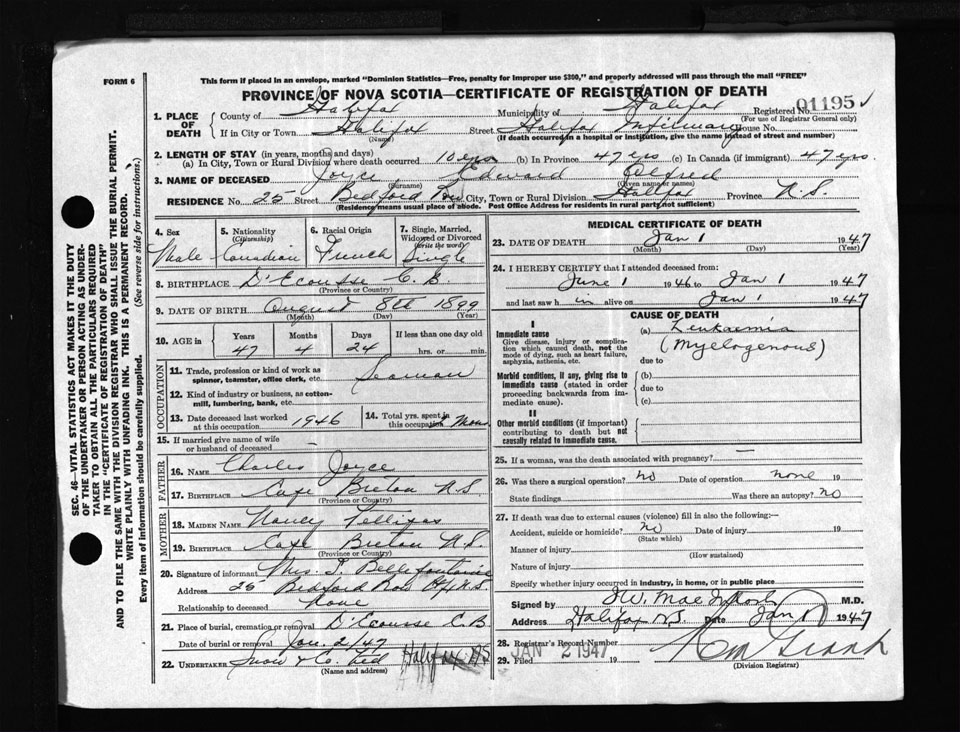 FORM 6
This form if placed in an envelope, marked "Dominion Statistics—Free, penalty for improper use $300," and properly addressed will pass through the mail "FREE"
PROVINCE OF NOVA SCOTIA—CERTIFICATE OF REGISTRATION OF DEATH
SEC. 46—VITAL STATISTICS ACT MAKES IT THE DUTY
OF THE UNDERTAKER OR PERSON ACTING AS UNDER-
TAKER TO OBTAIN ALL THE PARTICULARS REQUIRED
IN THE "CERTIFICATE OF REGISTRATION OF DEATH"
AND TO FILE THE SAME WITH THE DIVISION REGISTRAR WHO SHALL ISSUE THE BURIAL PERMIT.
WRITE PLAINLY WITH UNFADING INK. THIS IS A PERMANENT RECORD.
Every item of information should be carefully supplied. (See reverse side for instructions.)
1. PLACE OF DEATH
County of Halifax Municipality of Halifax Registered No. 01195
(For use of Registrar General only)
If in City or Town Halifax Street Halifax Infirmary House No.
(Name) (If death occurred in a hospital or institution, give the name instead of street and number)
2. LENGTH OF STAY (in years, months and days)
(a) In City, Town or Rural Division where death occurred 10 yrs (b) In Province 47 yrs (c) In Canada (if immigrant) 47 yrs.
3. NAME OF DECEASED Joyce Edward Wilfred
(Surname) (Given name or names)
RESIDENCE No. 25 Street Bedford Row City, Town or Rural Division Halifax Province N.S.
(Residence means usual place of abode. Post Office Address for residents in rural parts not sufficient)
4. Sex
Male
5. Nationality
(Citizenship)
Canadian
6. Racial Origin
French
7. Single, Married,
Widowed or Divorced
(Write the word)
Single
8. BIRTHPLACE D'Ecousse C.B.
(Province or Country)
9. DATE OF BIRTH August 8th 1899
(Month) (Day) (Year)
10. AGE in Years Months Days If less than one day old
47 4 24 hrs. or min.
OCCUPATION
11. Trade, profession or kind of work as
spinner, teamster, office clerk, etc. Seaman
12. Kind of industry or business, as cotton-
mill, lumbering, bank, etc.
13. Date deceased last worked
at this occupation 1946
14. Total yrs. spent in
this occupation
15. If married give name of wife
or husband of deceased —
FATHER
16. NAME Charles Joyce
17. BIRTHPLACE Cape Breton N.S.
(Province or Country)
MOTHER
18. MAIDEN NAME Nancy
19. BIRTHPLACE Cape Breton N.S.
(Province or Country)
20. Signature of informant Mrs. J. Bellefontaine
Address 25 Bedford Row Hfx N.S.
Relationship to deceased None
21. Place of burial, cremation or removal D'Ecousse C.B
Date of burial or removal Jan. 2/47
22. UNDERTAKER Snow & Co. Ltd Halifax NS
(Name and address)
MEDICAL CERTIFICATE OF DEATH
23. DATE OF DEATH Jan 1 1947
(Month) (Day) (Year)
24. I HEREBY CERTIFY that I attended deceased from
June 1 1946 to Jan 1 1947
and last saw h im alive on Jan 1 1947
CAUSE OF DEATH
I
Immediate cause
Give disease, injury or complica-
tion which caused death, not the
mode of dying, such as heart failure,
asphyxia, asthenia, etc.
(a) Leukaemia
(Myelogenous)
due to
Morbid conditions, if any, giving rise to
immediate cause (stated in order
proceeding backwards from im-
mediate cause).
(b)
due to
(c)
II
Other morbid conditions (if important)
contributing to death but not
causally related to immediate cause.
25. If a woman, was the death associated with pregnancy? —
26. Was there a surgical operation? no Date of operation none 19
State findings Was there an autopsy? no
27. If death was due to external causes (violence) fill in also the following:—
Accident, suicide or homicide? No Date of injury 19
(State which)
Manner of injury
(How sustained)
Nature of injury
Specify whether injury occurred in industry, in home, or in public place
Signed by M.D.
Address Halifax N.S. Date Jan 1 1947
28. Registrar's Record Number
29. Filed JAN 2 1947 19
(Division Registrar)